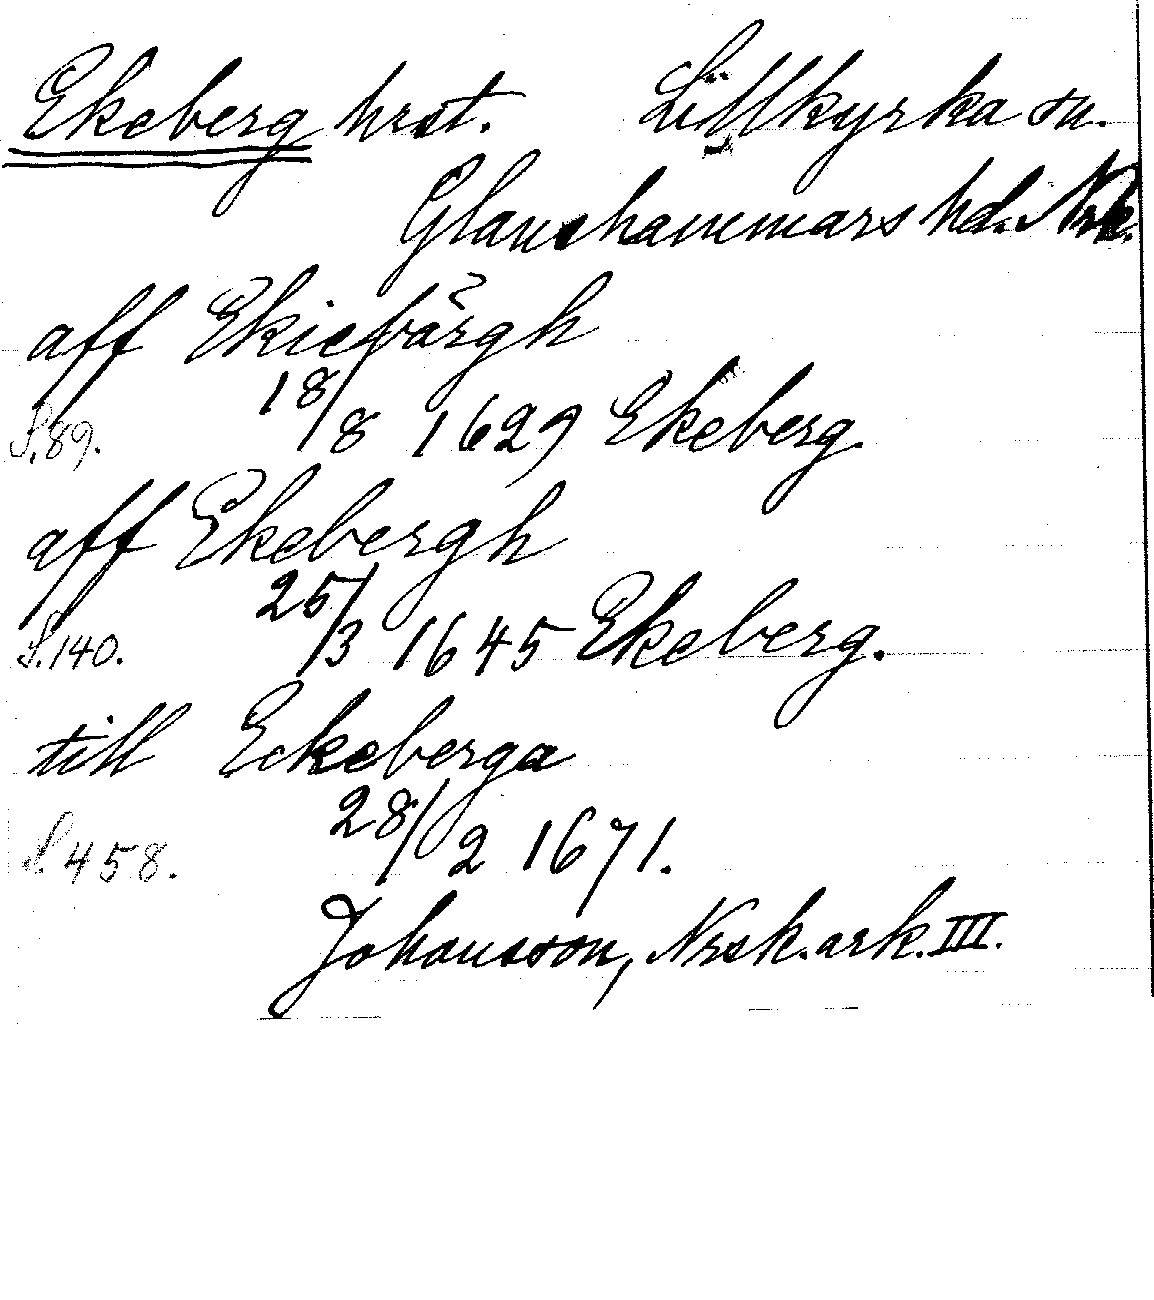 Ekeberg hrst. Lillkyrka sn.
Glanshammars hd. Nrk.
aff Ekiebärgh
S. 89. 18/8 1629 Ekeberg.
aff Ekebergh
S. 140. 25/3 1645 Ekeberg.
till Eckeberga
S. 458. 28/2 1671.
Johansson, Nrsk. ark. III.